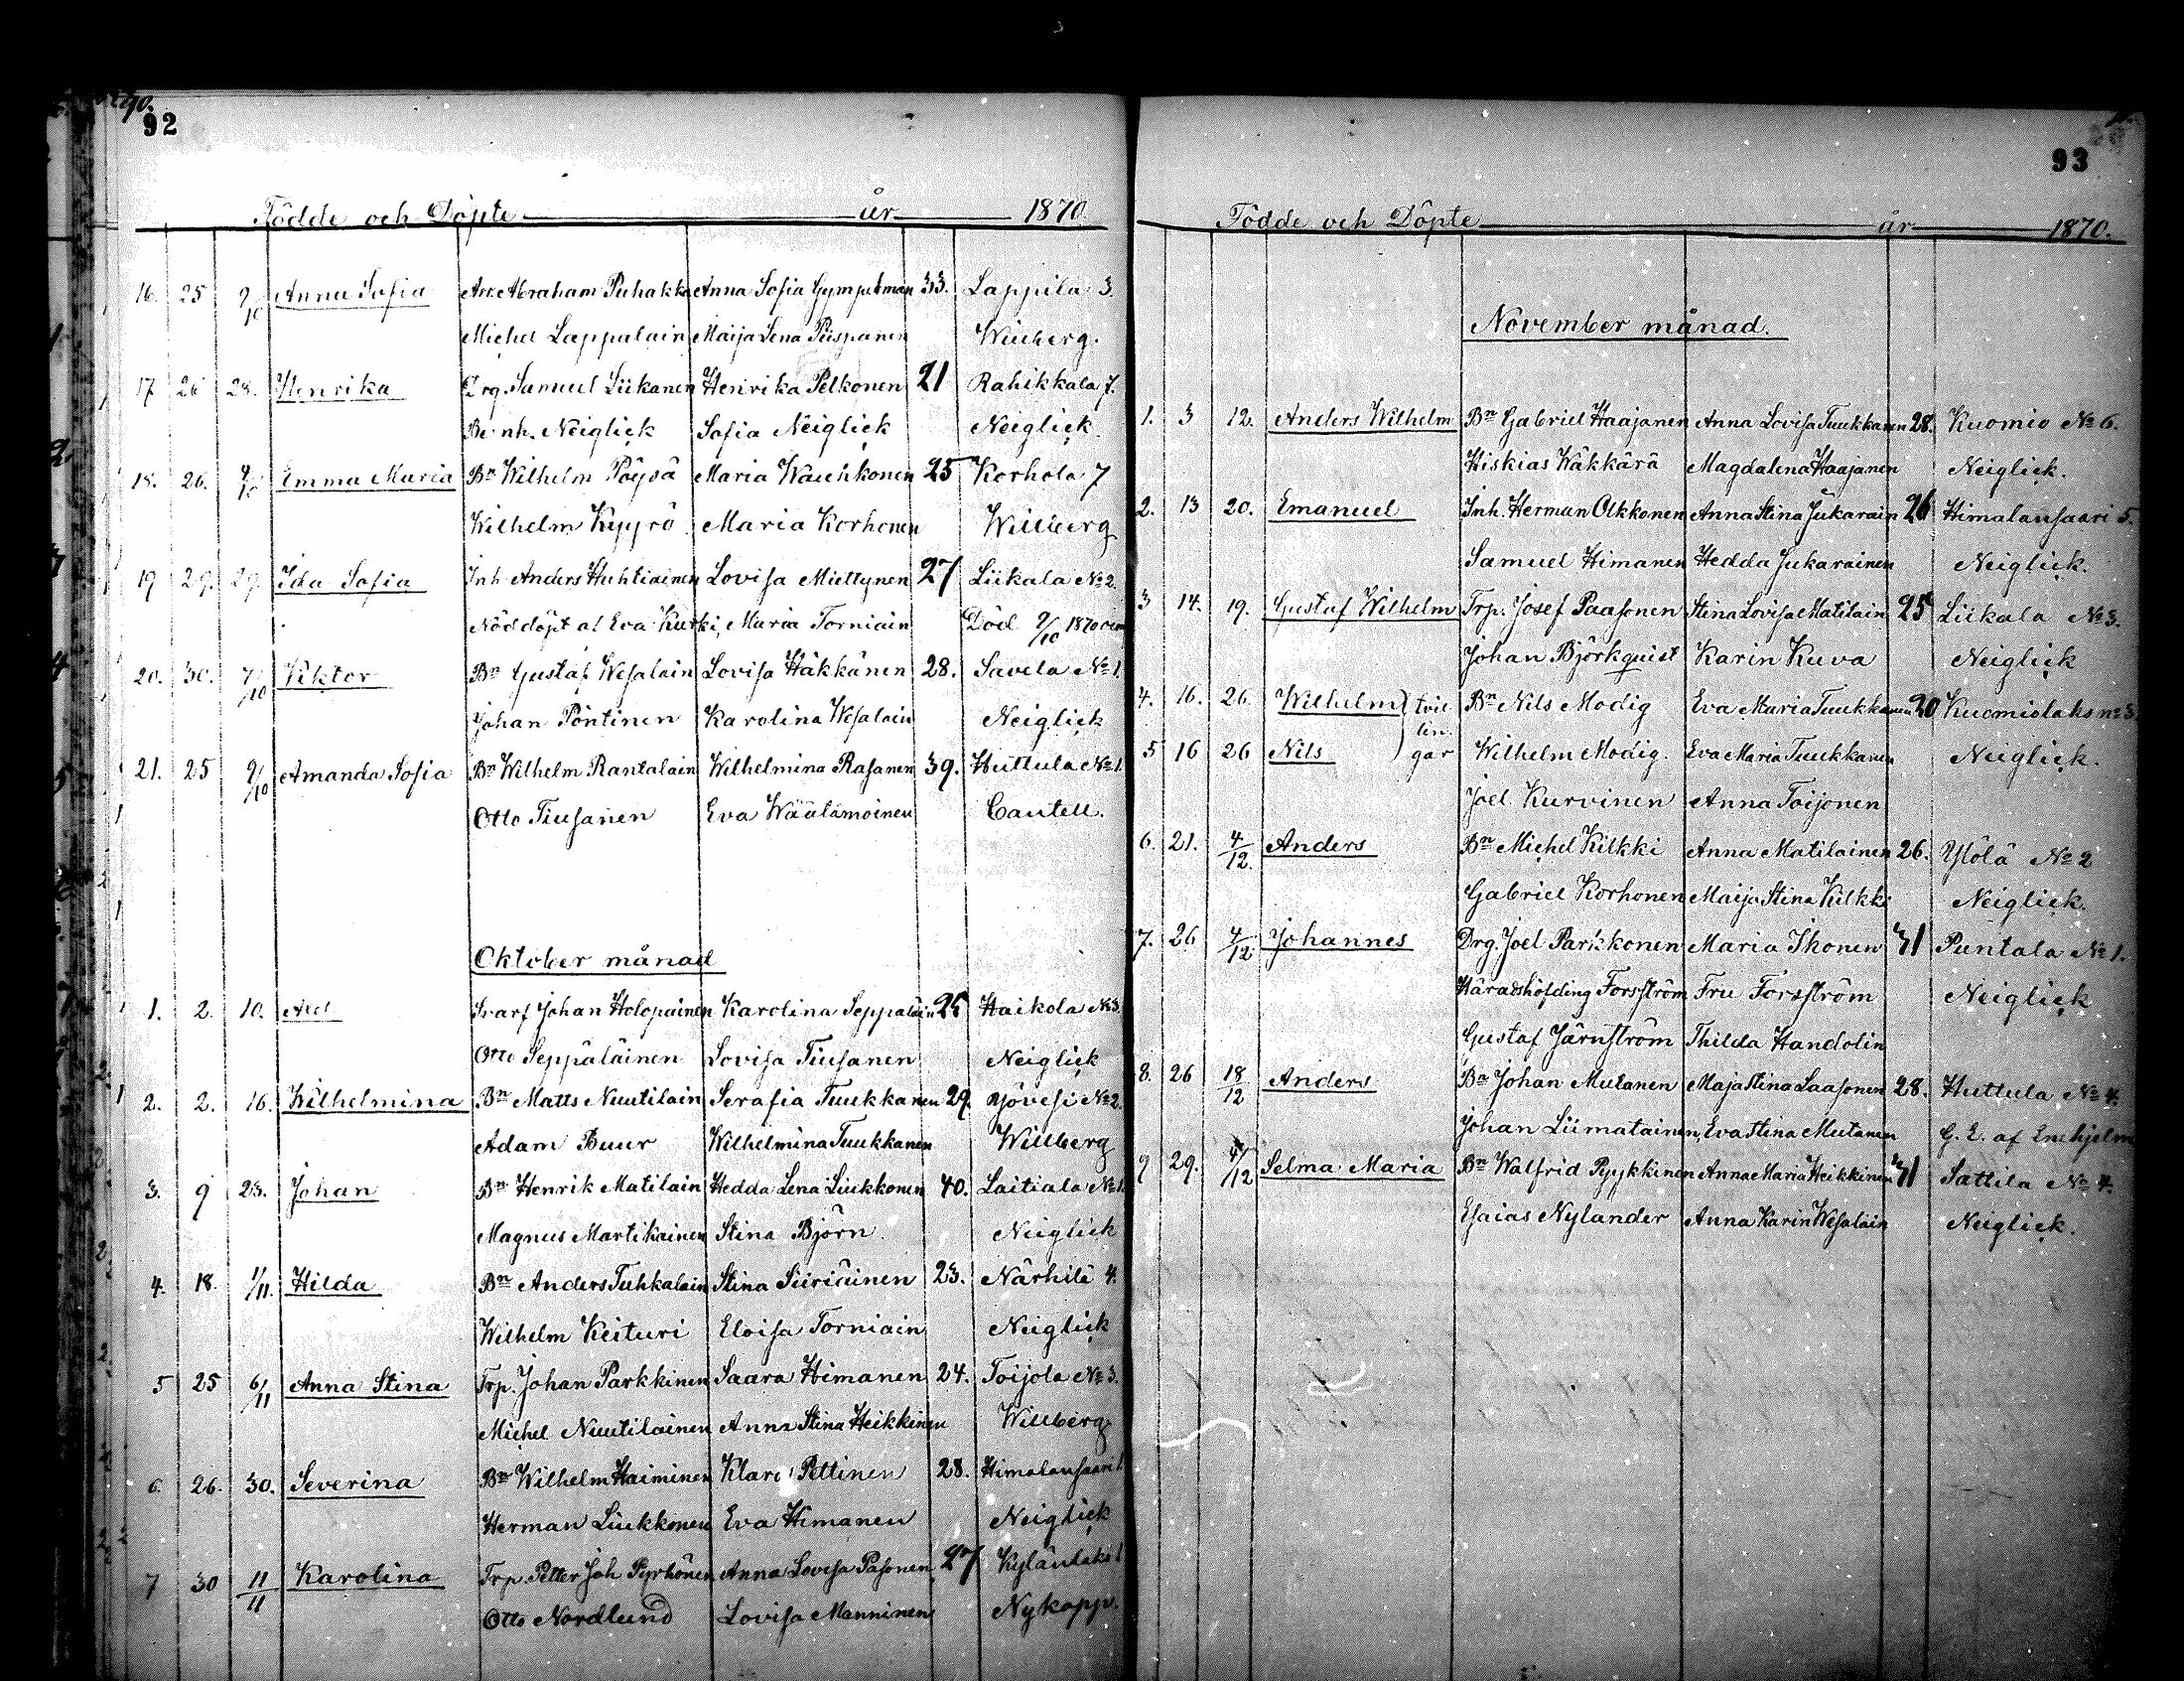 90.
92
Födde och Döpte år 1870
16. 25 9/10 Anna Sofia Abraham Puhakka Anna Sofia 33. Lappila 3.
Michel Lappalain Maija Lena Piispanen
17 26 28. Henrika Drg. Samuel Liikanen Henrika Pelkonen 21 Rahikkala 7.
Bernh. Neiglick Sofia Neiglick Neiglick.
18. 26. 9/10 Emma Maria Bn Wilhelm Pöysä Maria Wauhkonen 25 Korhola 7
Wilhelm Kyyrö Maria Korhonen Willberg
19 29. 29. Ida Sofia Inh. Anders Huhtiainen Lovisa Miettynen 27 Liikala No 2.
Nöddöpt af Eva Kurki, Maria Torniain Död 9/10 1870
20. 30. 7/10 Viktor Bn Gustaf Wesalain Lovisa Häkkänen 28. Savela No 1.
Johan Pöntinen Karolina Wesalain Neiglick
21. 25 9/10 Amanda Sofia Bn Wilhelm Rantalain Wilhelmina Rasanen 39. Huttula No 1.
Otto Tiusanen Eva Wäälämoinen Cantell.
Oktober månad
1. 2. 10. Axel Johan Holopainen Karolina Seppäläin 25 Haikola No 3.
Otto Seppäläinen Lovisa Tiusanen Neiglick
2. 2. 16. Wilhelmina Bn Matts Nuutilain Serafia Tuukkanen 29. No 2.
Adam Buur Wilhelmina Tuukkanen Willberg
3. 9 23. Johan Bn Henrik Matilain Hedda Lena Liukkonen 40. Laitiala No 1.
Magnus Martikainen Stina Björn Neiglick
4. 18. 1/11. Hilda Bn Anders Tuhkalain Stina Siiriäinen 23. Närhilä 4.
Wilhelm Keituri Eloisa Torniain Neiglick
5 25 6/11 Anna Stina Trp. Johan Parkkinen Saara Himanen 24. Toijola No 3.
Michel Nuutilainen Anna Stina Heikkinen Willberg
6. 26. 30. Severina Bn Wilhelm Haiminen Klara Pettinen 28. Himalansaari 1.
Herman Liukkonen Eva Himanen Neiglick
7 30 11/11 Karolina Trp. Petter Joh Pyrhönen Anna Lovisa Pasonen 27 Kylänlaks 1
Otto Nordlund Lovisa Manninen Nykopp.
93
Födde och Döpte år 1870.
November månad.
1. 3 12. Anders Wilhelm Bn Gabriel Haajanen Anna Lovisa Tuukkanen 28. Kuomio No 6.
Hiskias Käkkärä Magdalena Haajanen Neiglick.
2. 13 20. Emanuel Inh. Herman Olkkonen Anna Stina Jukarain 26 Himalansaari 5.
Samuel Himanen Hedda Jukarainen Neiglick.
3 14. 19. Gustaf Wilhelm Trp. Josef Paasonen Stina Lovisa Matilain 25 Liikala No 3.
Johan Björkquist Karin Kuva Neiglick
4. 16. 26. Wilhelm tvil Bn Nils Modig Eva Maria Tuukkanen 20 Kuomiolaks no 3.
lin.
5 16 26 Nils gar Wilhelm Modig. Eva Maria Tuukkanen Neiglick.
Joel Kurvinen Anna Toijonen
6. 21. 4/12. Anders Bn Michel Kilkki Anna Matilainen 26. Ylölä No 2
Gabriel Korhonen Maija Stina Kilkki Neiglick.
7. 26 4/12 Johannes Drg. Joel Parkkonen Maria Ihonen 31 Puntala No 1.
Häradshöfding Forsström Fru Forsström Neiglick
Gustaf Järnström Thilda Handolin
8. 26 18/12 Anders Bn Johan Mutanen Maja Stina Laasonen 28. Huttula No 4.
Johan Liimatainen, Eva Stina Mutanen G. E. af Enehjelm
9 29. 4/12 Selma Maria Bn Walfrid Pyykkinen Anna Maria Heikkinen 31 Sattila No 4.
Esaias Nylander Anna Karin Wesalain Neiglick.